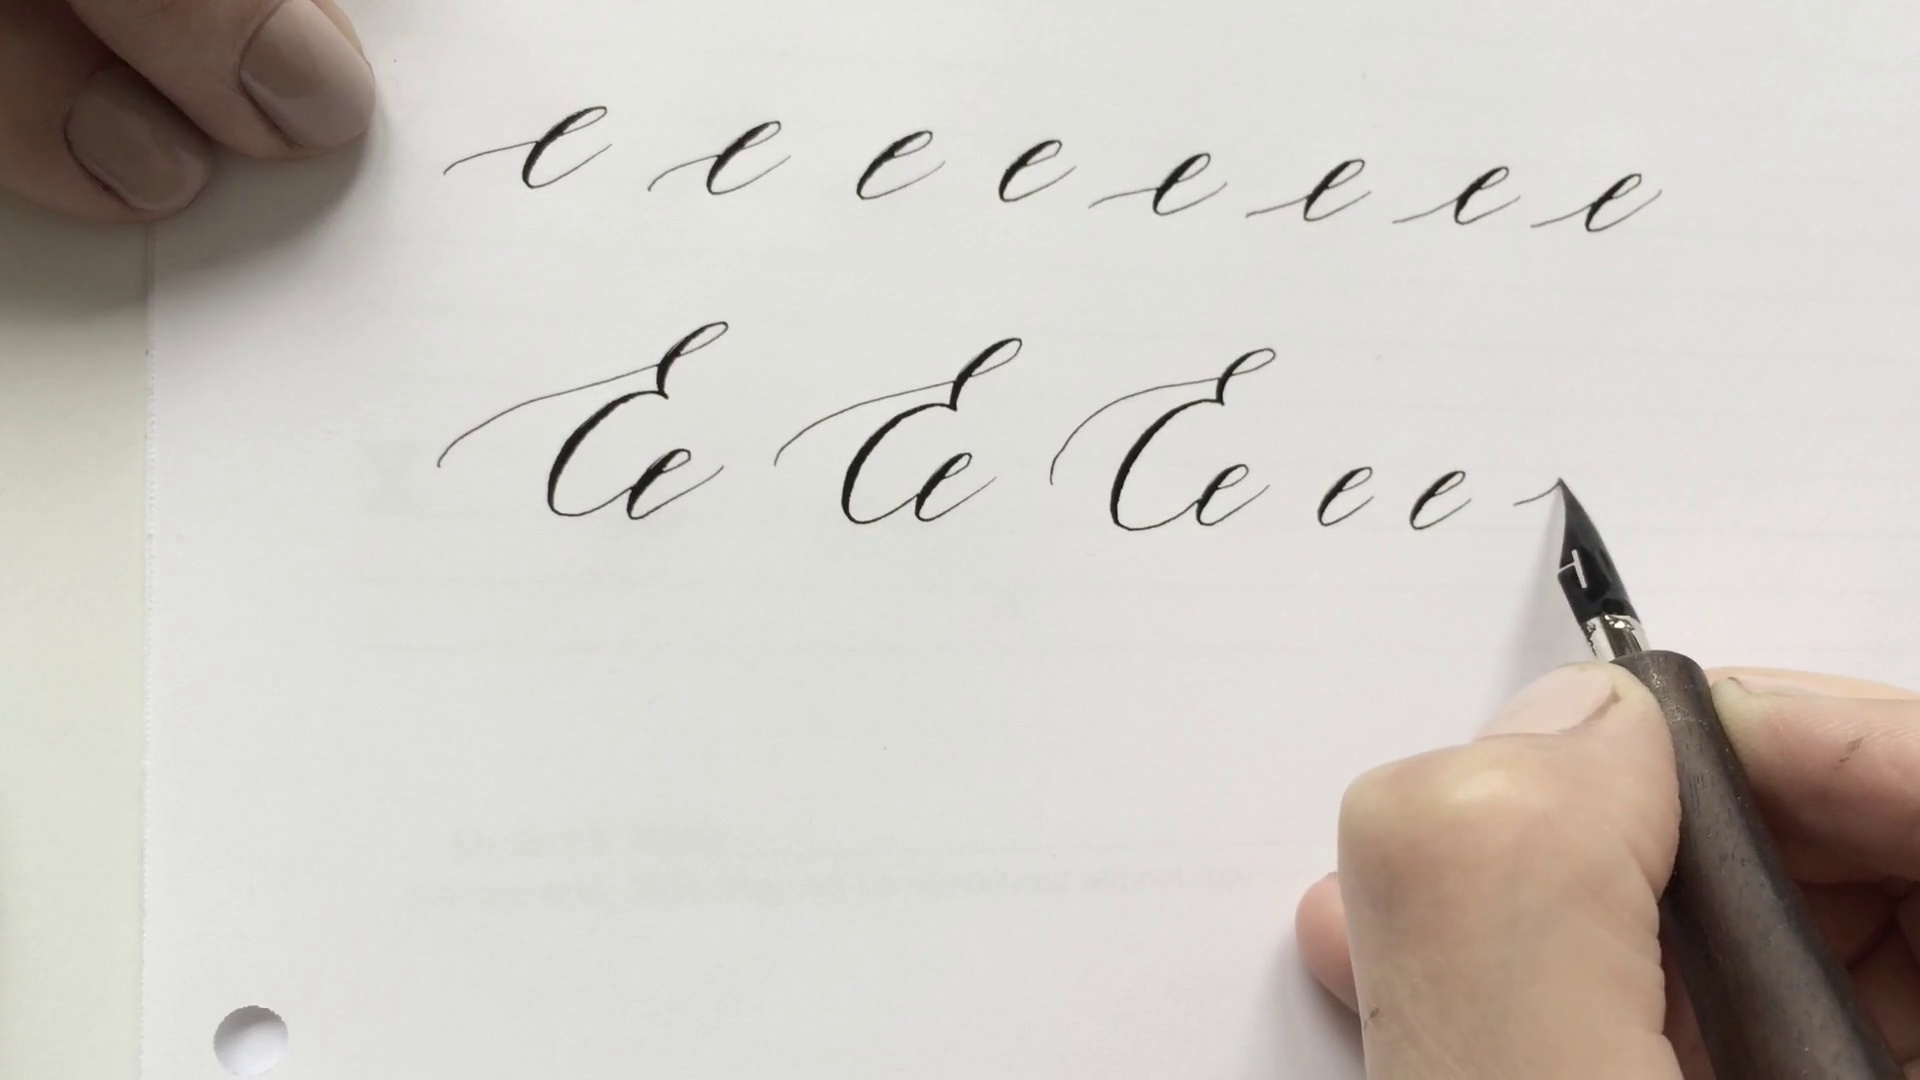 e e e e e e e e
Ee Ee Ee e e